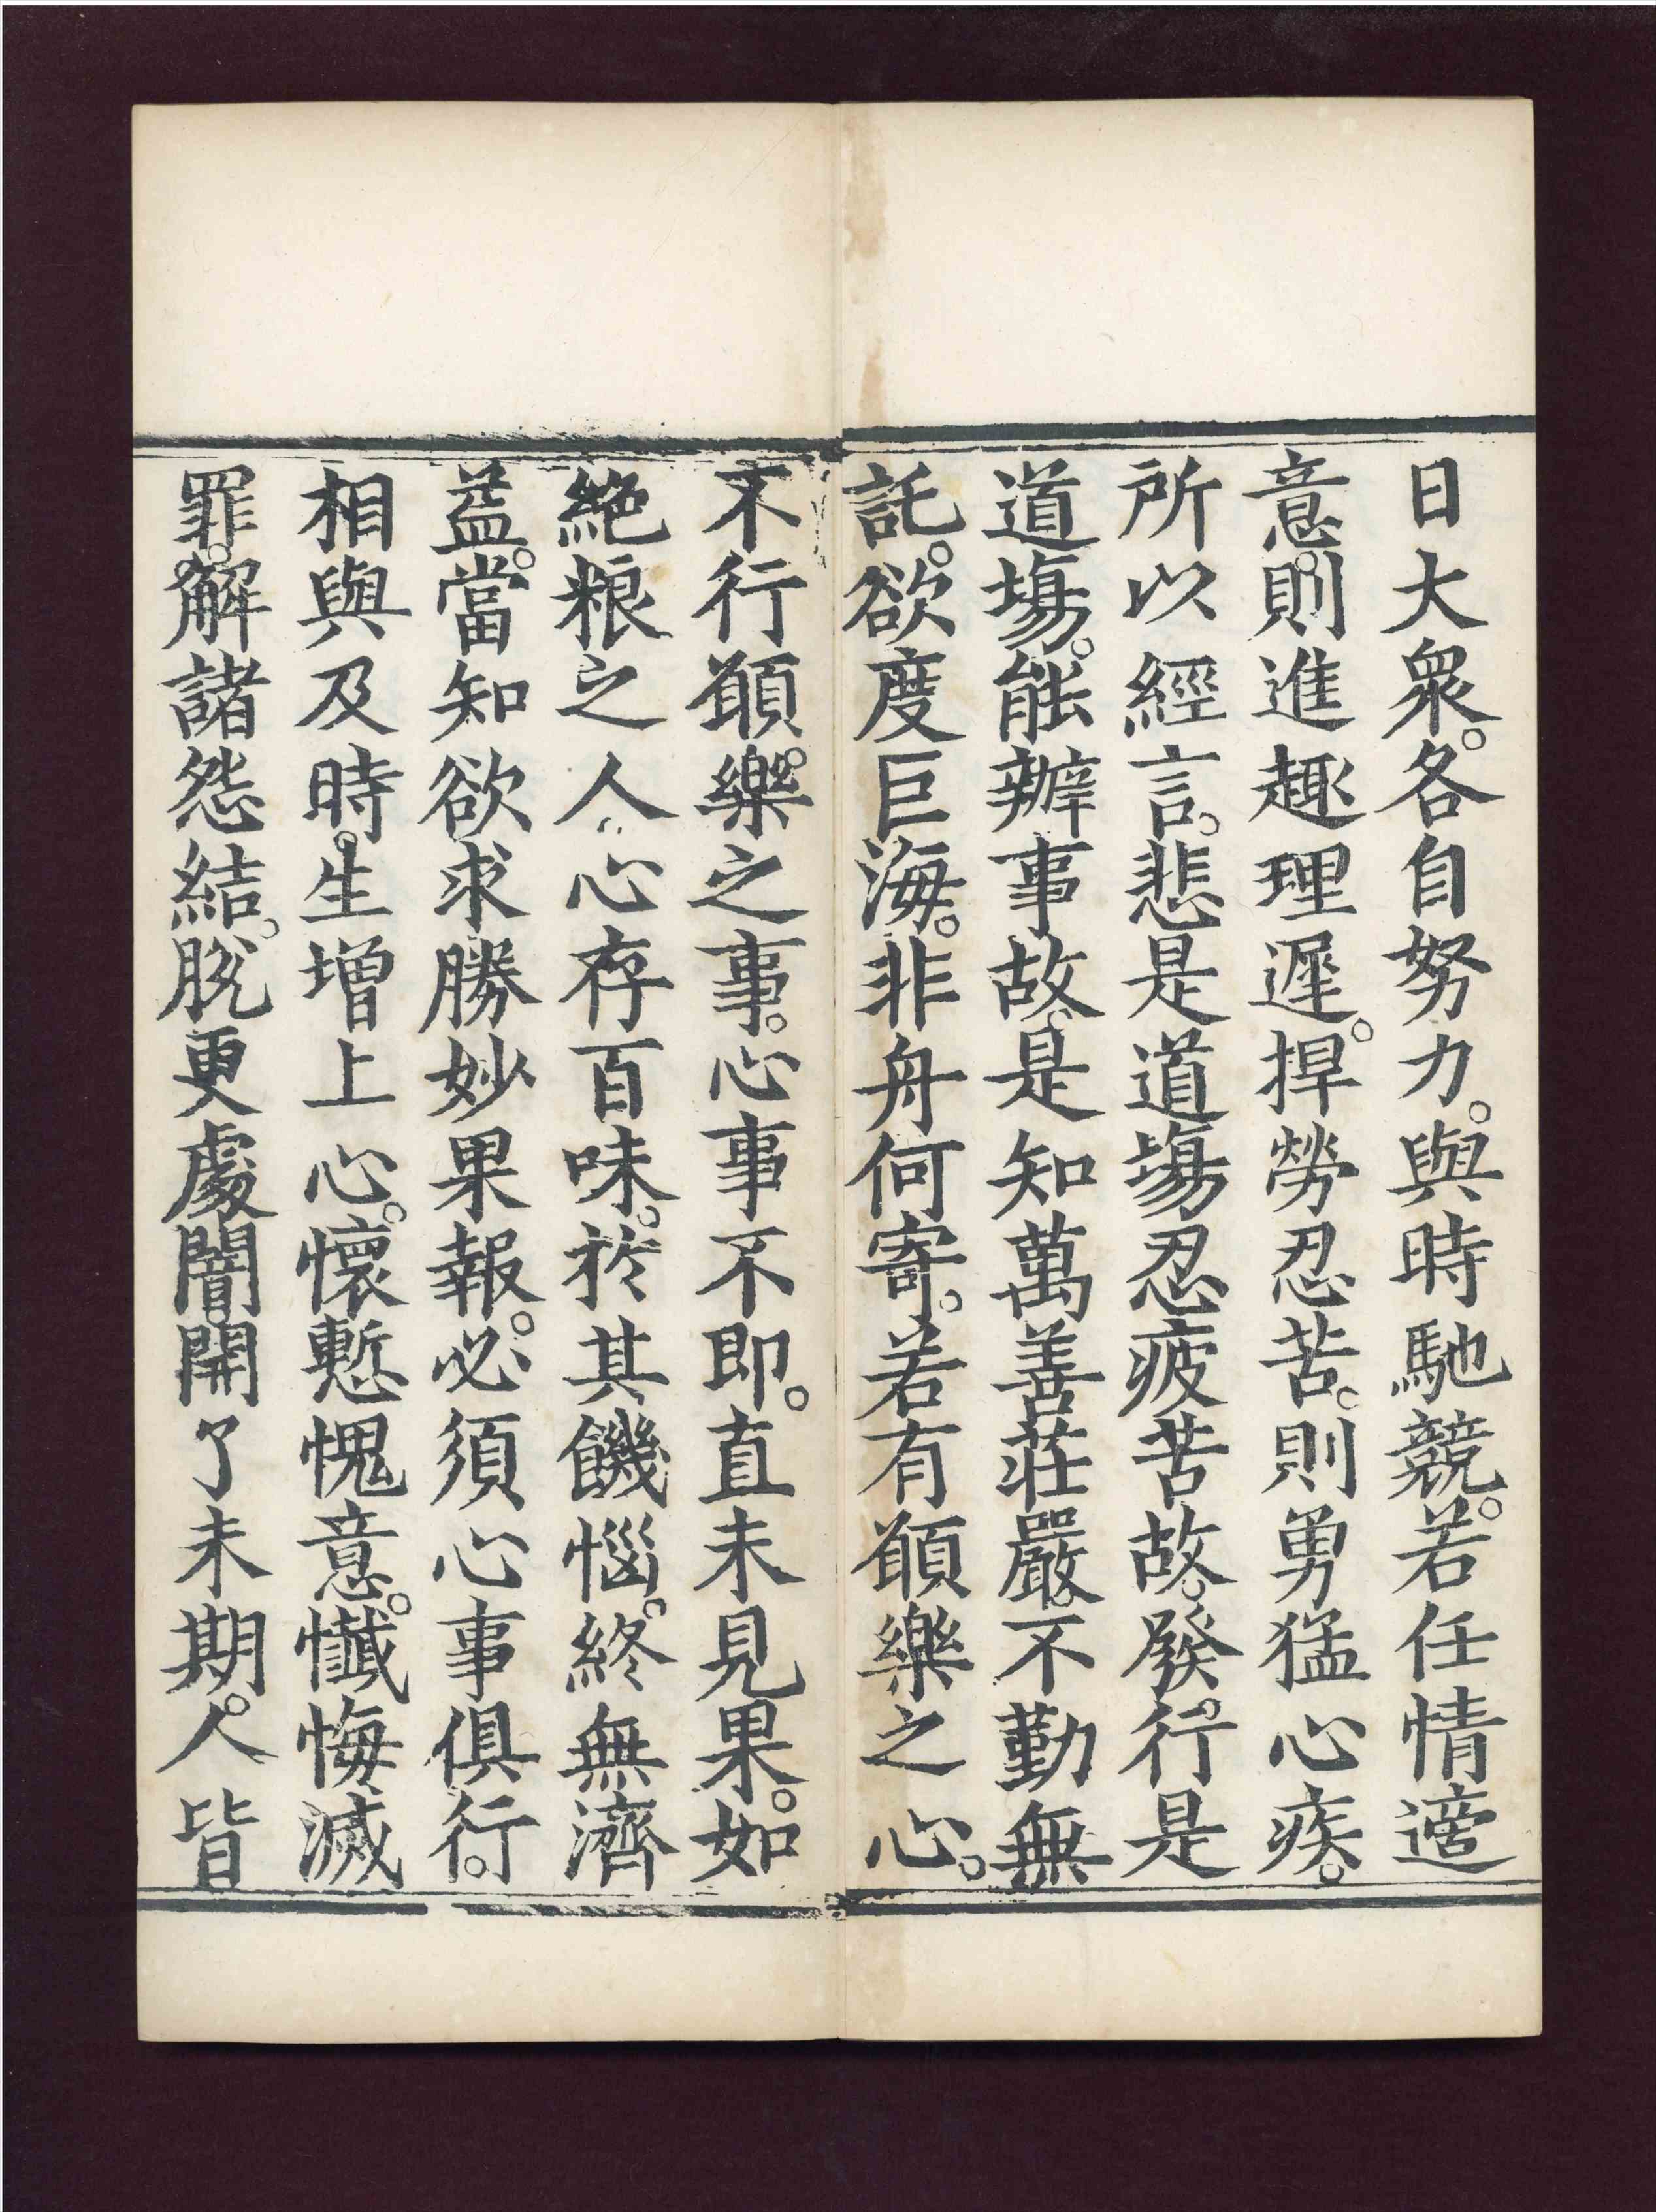 日大衆。各自努力。與時馳競。若任情適
意。則進趣理遲。捍勞忍苦。則勇猛心疾。
所以經言。悲是道塲忍疲苦故。發行是
道塲。能辦事故。是知萬善莊嚴。不勤無
託。欲度巨海。非舟何寄。若有願樂之心。
不行願樂之事。心事不即。直未見果。如
絶粮之人心存百味。於其饑惱。終無濟
益。當知欲求勝妙果報。必須心事俱行。
相與及時。生增上心。懷慙愧意。懺悔滅
罪。解諸怨結。脫更處闇。開了未期。人皆